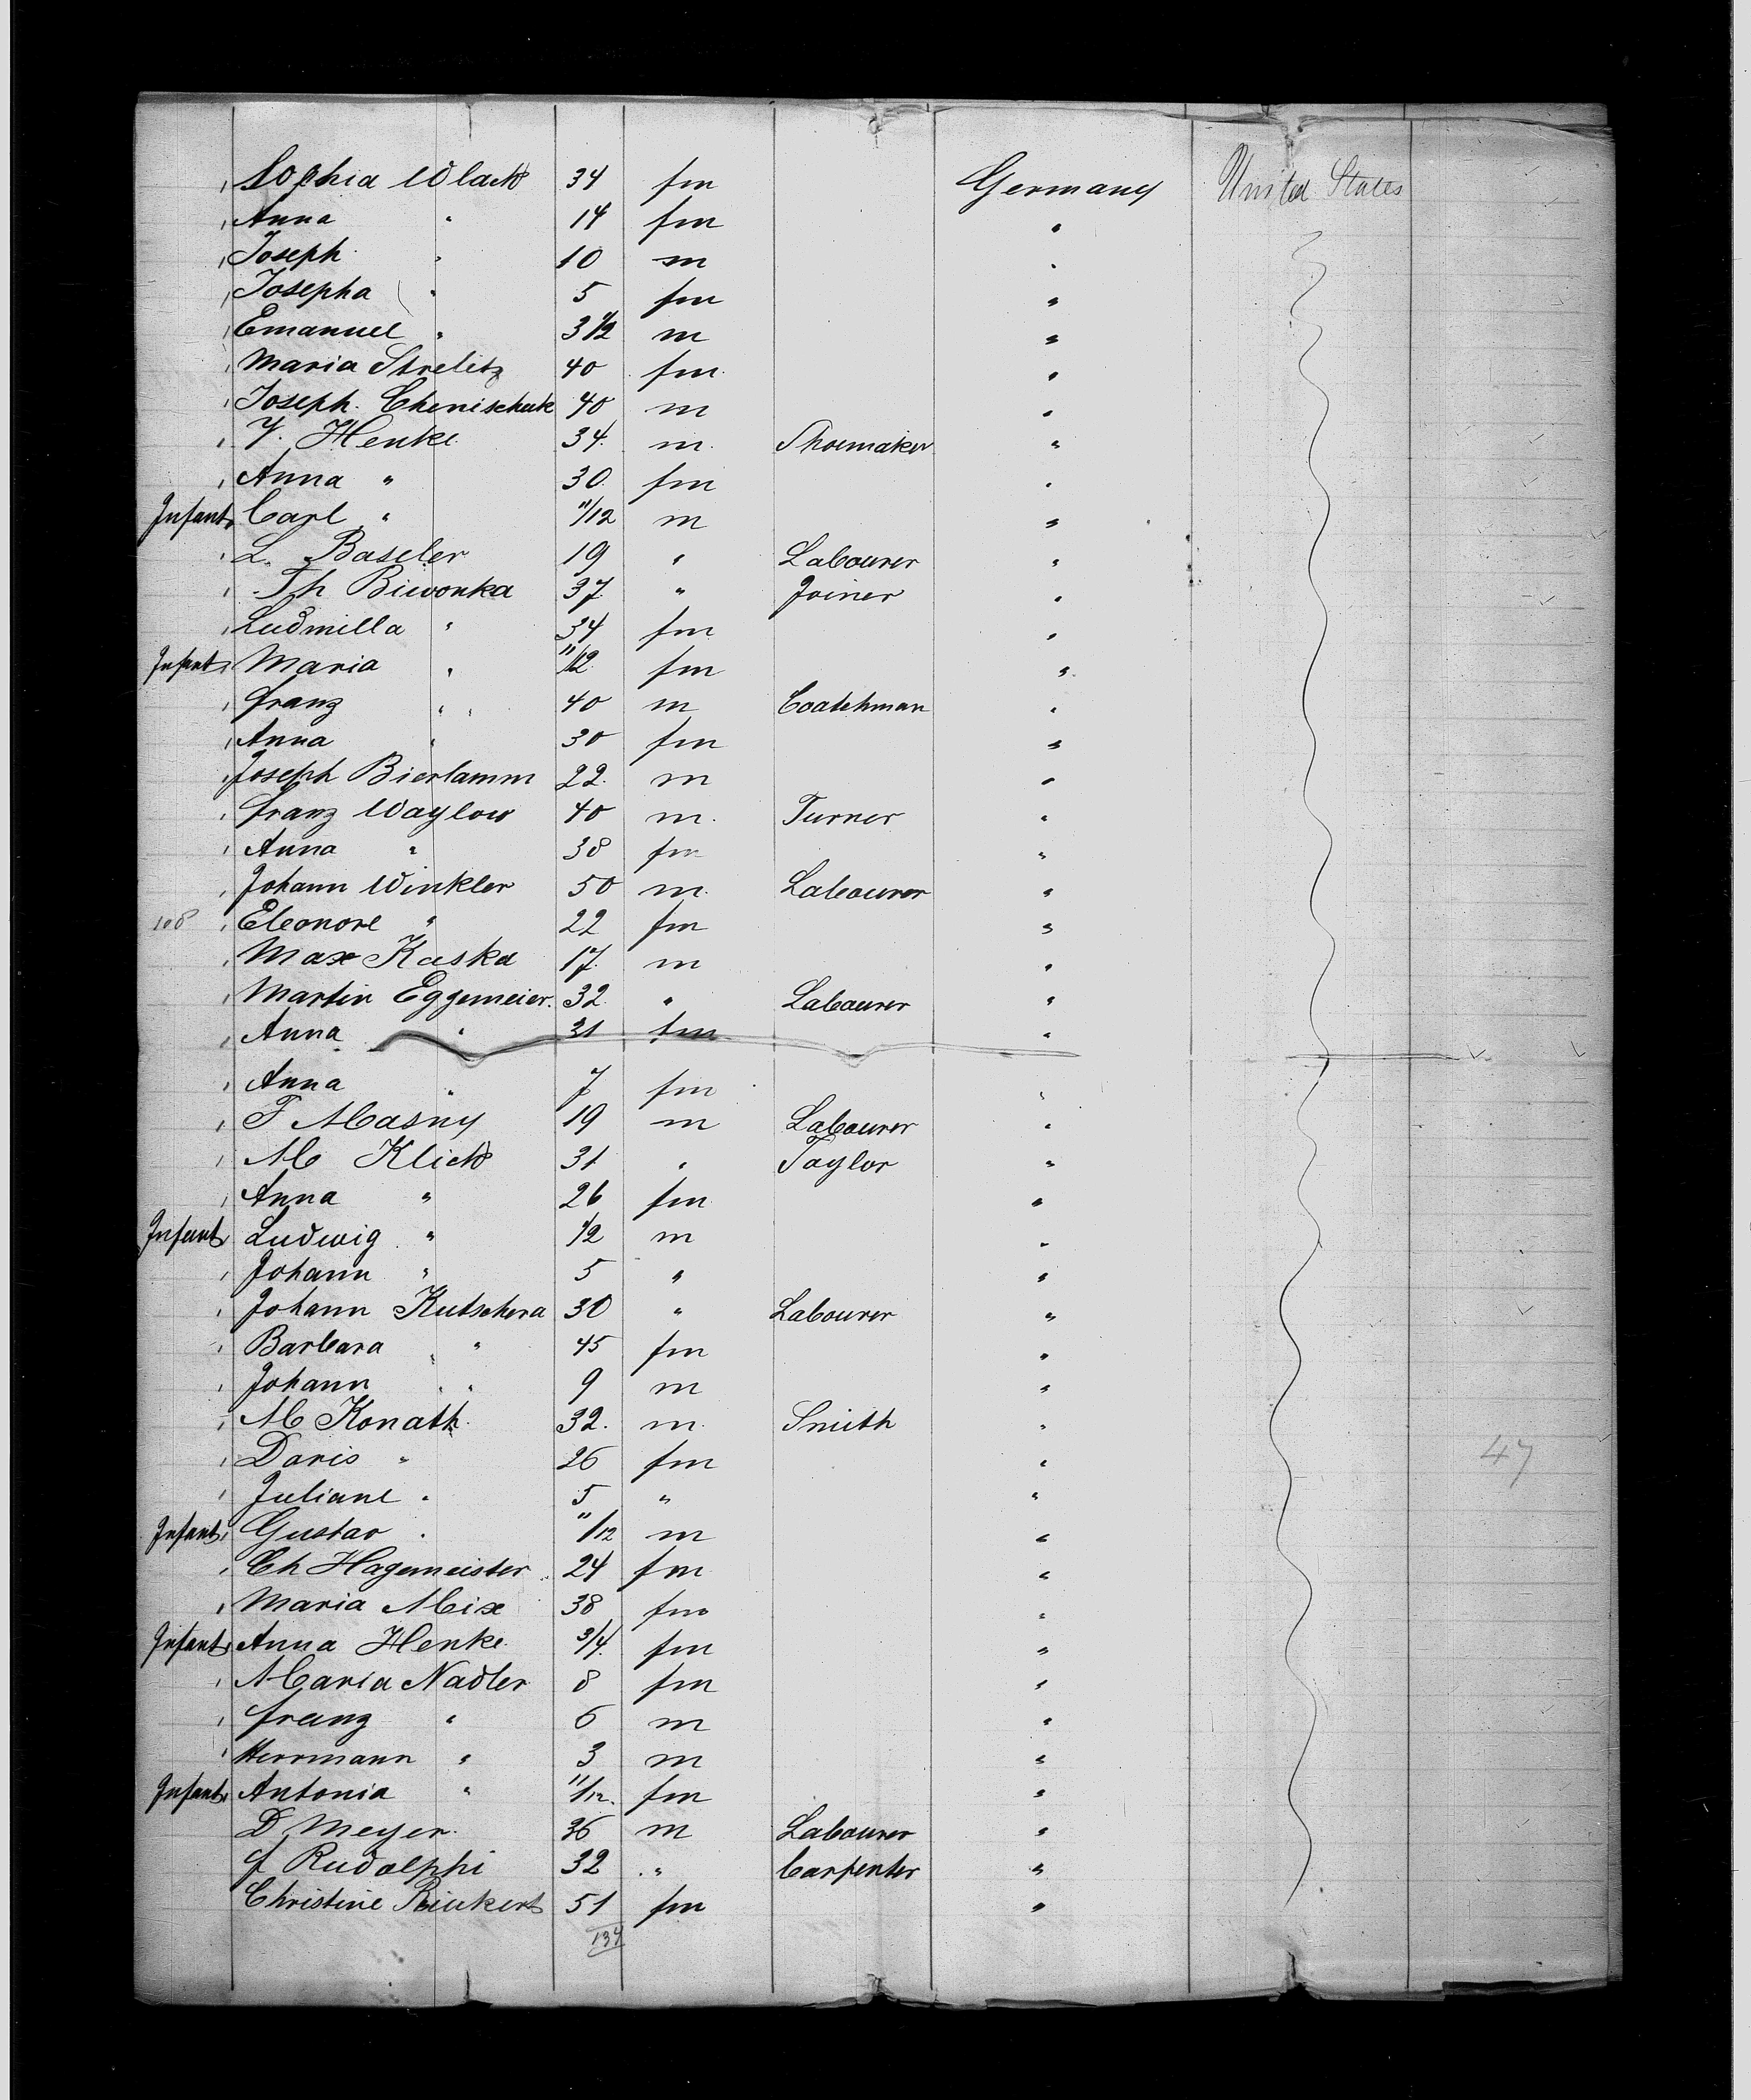 Sophia Wlach 34 fm Germany United States
Anna " 14 fm "
Joseph " 10 m "
Josepha " 5 fm "
Emanuel " 3 1/2 m "
Maria Strelitz 40 fm "
Joseph. Chenischek 40 m "
J. Henke 34. m. Shoemaker "
Anna " 30. fm "
Infant Carl " 11/12 m "
L. Baseler 19 " Labourer "
Th Biwonka 37 " Joiner "
Ludmilla " 34 fm "
Infant Maria " 11/12 fm "
Franz " 40 m Coatchman "
Anna " 30 fm "
Joseph Bierlamm 22. m "
Franz Waylow 40 m. Turner "
Anna " 38 fm "
Johann Winkler 50 m. Labourer "
108 Eleonore " 22 fm "
Max Kaska 17. m "
Martin Eggemeier. 32. " Labourer "
Anna " 31 fm "
Anna " 7 fm "
F Masny 19 m Labourer "
M Klich 31 " Taylor "
Anna " 26 fm "
Infant Ludwig " 1/2 m "
Johann " 5 " "
Johann Kutschera 30 " Labourer "
Barbara " 45 fm "
Johann " 9 m "
M Konath. 32. m. Smith "
Doris " 26 fm " 47
Juliane " 5 " "
Infant Gustav " 11/12 m "
Ch Hagemeister 24 fm "
Maria Mix 38 fm "
Infant Anna Henke 3/4. fm "
Maria Nadler 8 fm "
Franz " 6 m "
Herrmann " 3 m "
Infant Antonia " 11/12. fm "
D Meyer. 36 m Labourer "
F Rudolphi 32 " Carpenter "
Christine Rinkert 51 fm "
134